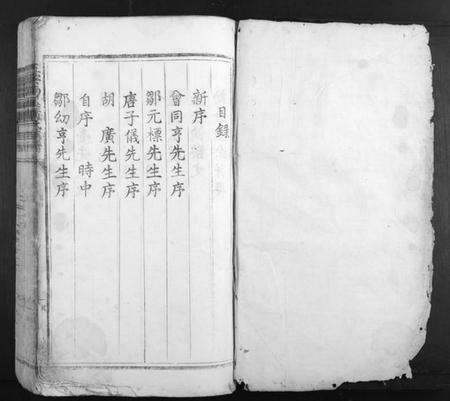 目錄
新序
會同亨先生序
鄒元標先生序
唐子儀先生序
胡廣先生序
自序 時中
鄒幼亨先生序